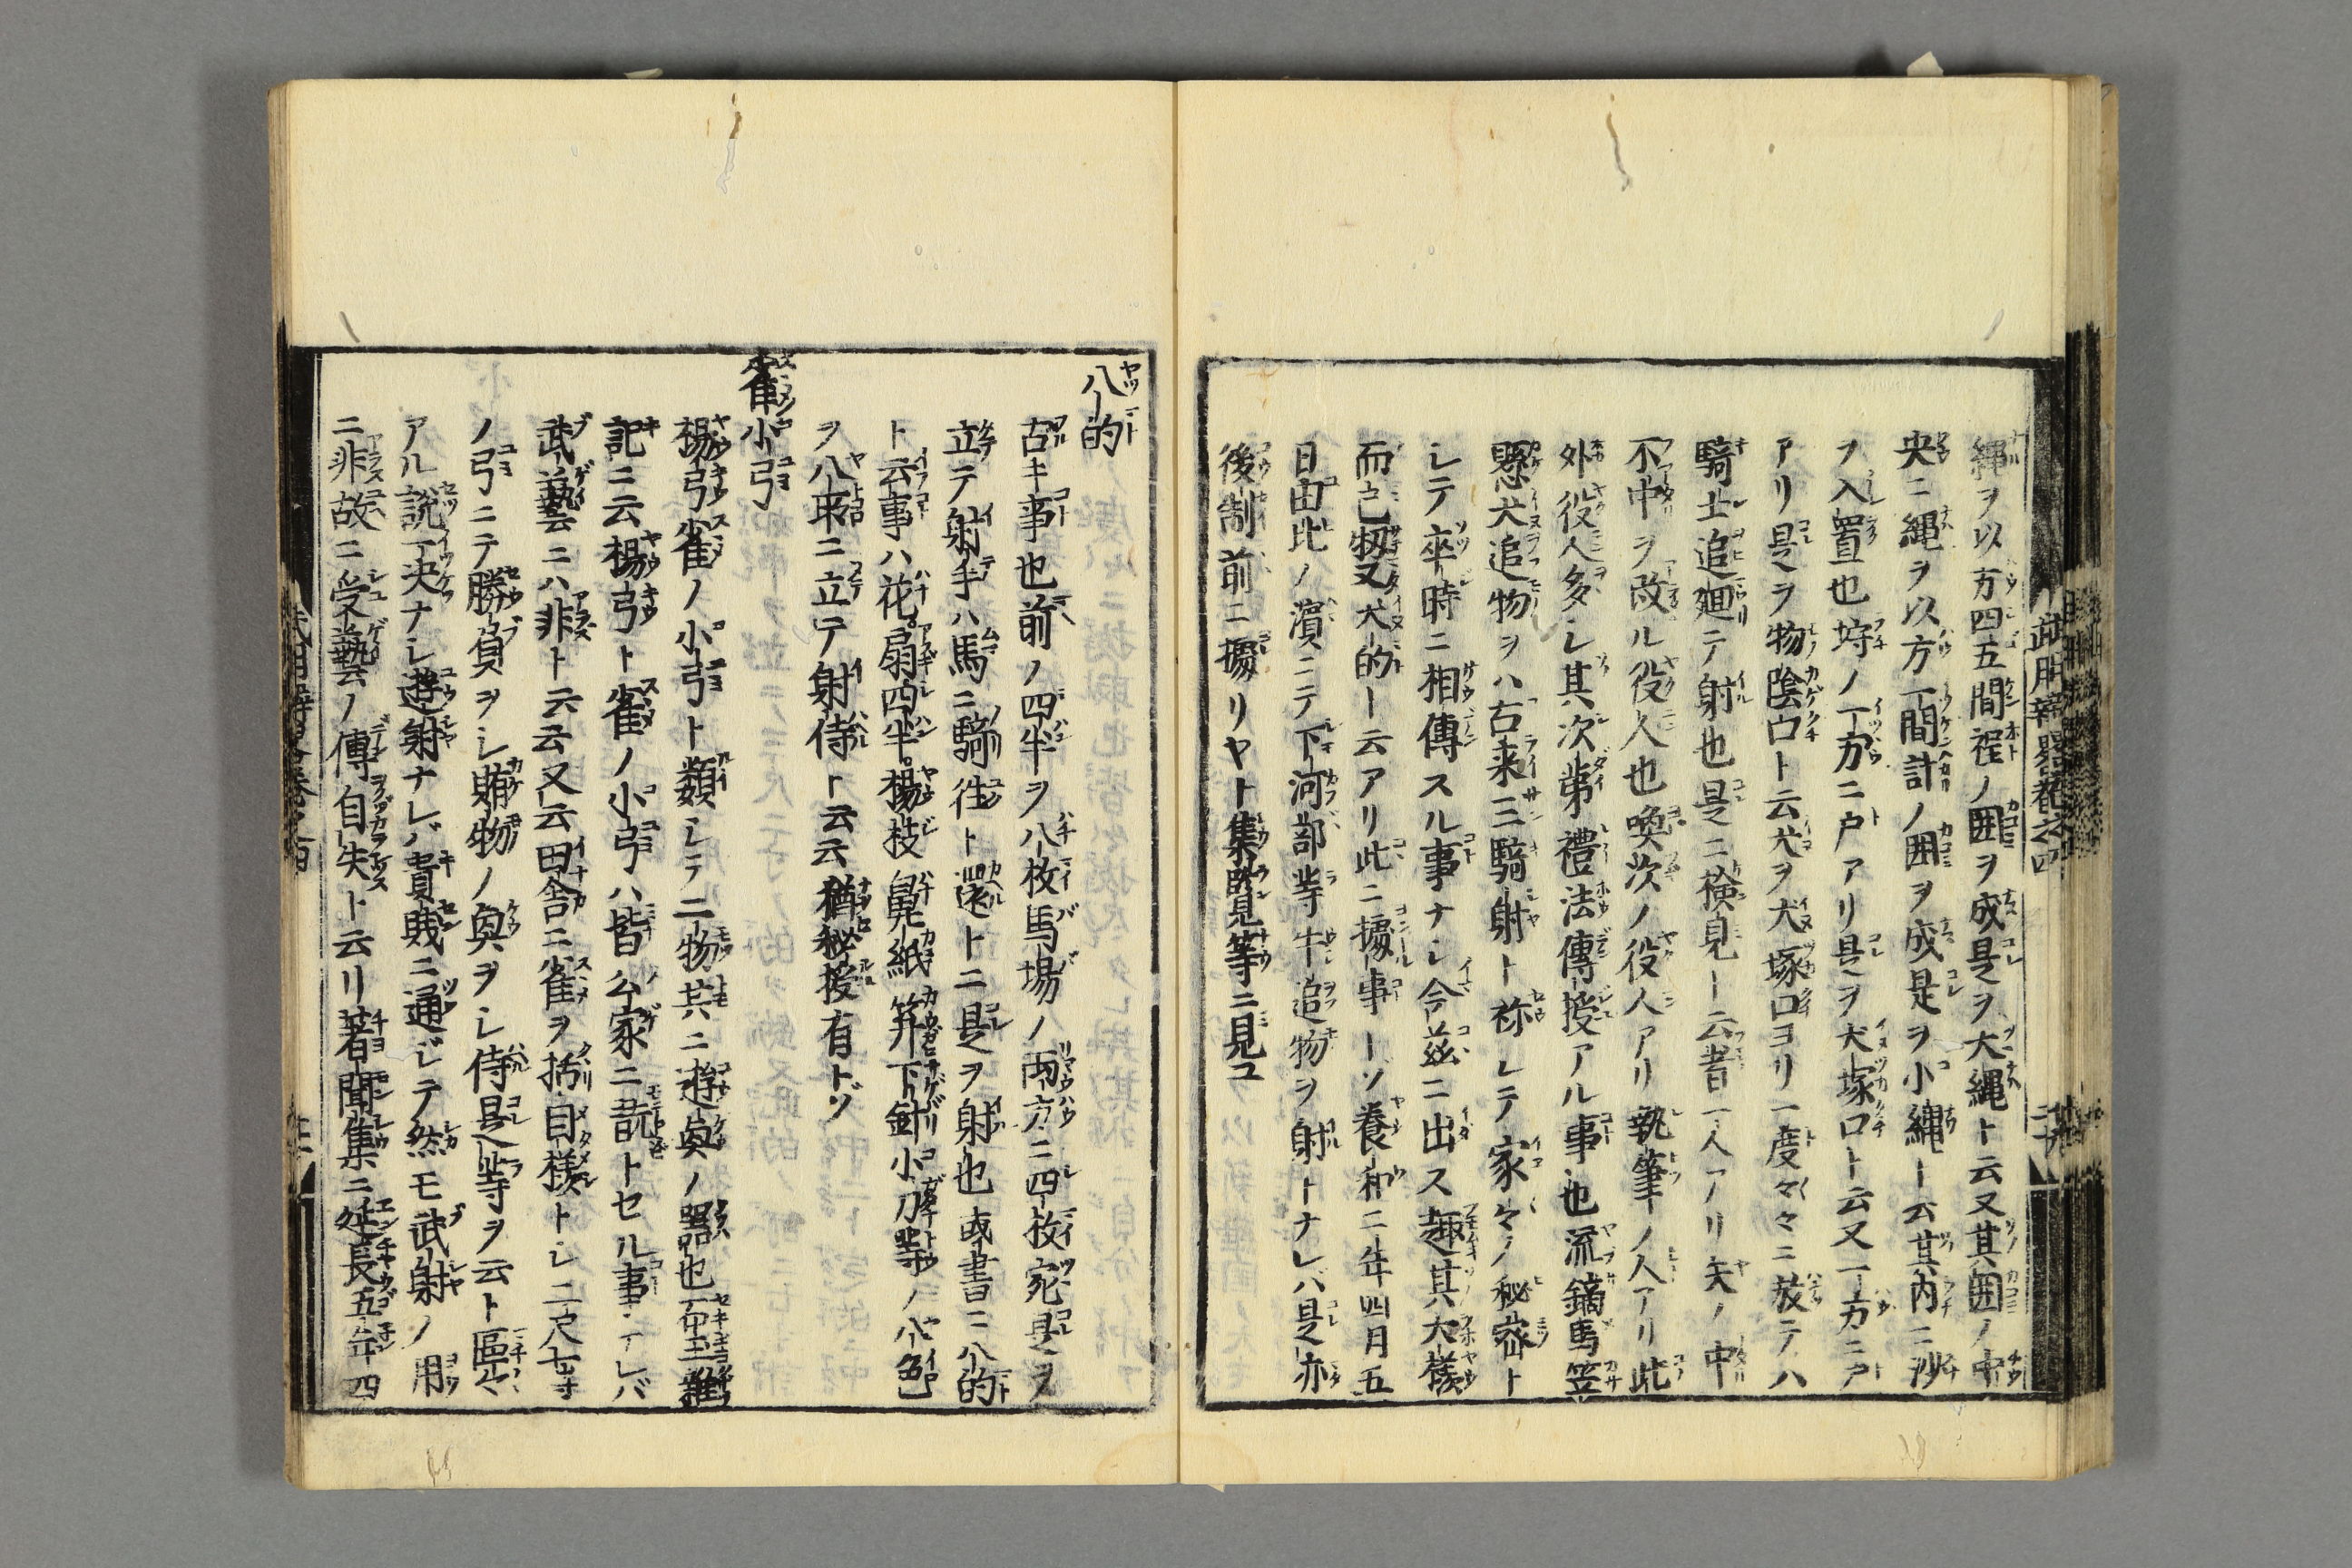 縄ヲ以方四五間程ノ囲ヲ成是ヲ大縄ト云又其囲ノ中
央ニ縄ヲ以方一間計ノ囲ヲ成是ヲ小縄ト云其内ニ沙
ヲ入置也垨ノ一方ニ戸アリ是ヲ犬塚口ト云又一方ニ戸
アリ是ヲ物陰口ト云犬ヲ犬塚口ヨリ一度々々ニ放テハ
騎士追廻テ射也是ニ検見ト云者一人アリ矢ノ中
不中ヲ改ル役人也喚次ノ役人アリ執筆ノ人アリ此
外役人多シ其次第禮法傳授アル事也流鏑馬笠
懸犬追物ヲハ古来三騎射ト称シテ家々ノ秘密ト
シテ卒時ニ相傳スル事ナシ今茲ニ出ス趣其大様
而已扨又犬的ト云アリ此ニ據事トソ養和二年四月五
日由比ノ濱ニテ下河部等牛追物ヲ射トナレバ是亦
後制前ニ據リヤト集覧等ニ見ユ
八的
古キ事也前ノ四半ヲ八枚馬場ノ両方ニ四枚宛是ヲ
立テ射手ハ馬ニ騎往ト還トニ是ヲ射也或書ニ八的
ト云事ハ花。扇四半。楊枝鼻紙笄下針小刀等ノ八色
ヲ八所ニ立テ射侍ト云云猶秘授有トゾ
雀小弓
楊弓雀ノ小弓ト類シテ二物共ニ遊奥ノ器也雍
記ニ云楊弓ト雀ノ小弓ハ皆公家ニ翫トセル事ナレバ
武藝ニハ非ト云云又云田舎ニ雀ヲ括目様トシ二尺七寸
ノ弓ニテ勝負ヲシ賭物ノ奥ヲシ侍是等ヲ云ト區々
アル説一決ナシ遊射ナレバ貴賎ニ通ジテ然モ武射ノ用
ニ非故ニ受藝ノ傳自失ト云リ著聞集ニ延長五年四